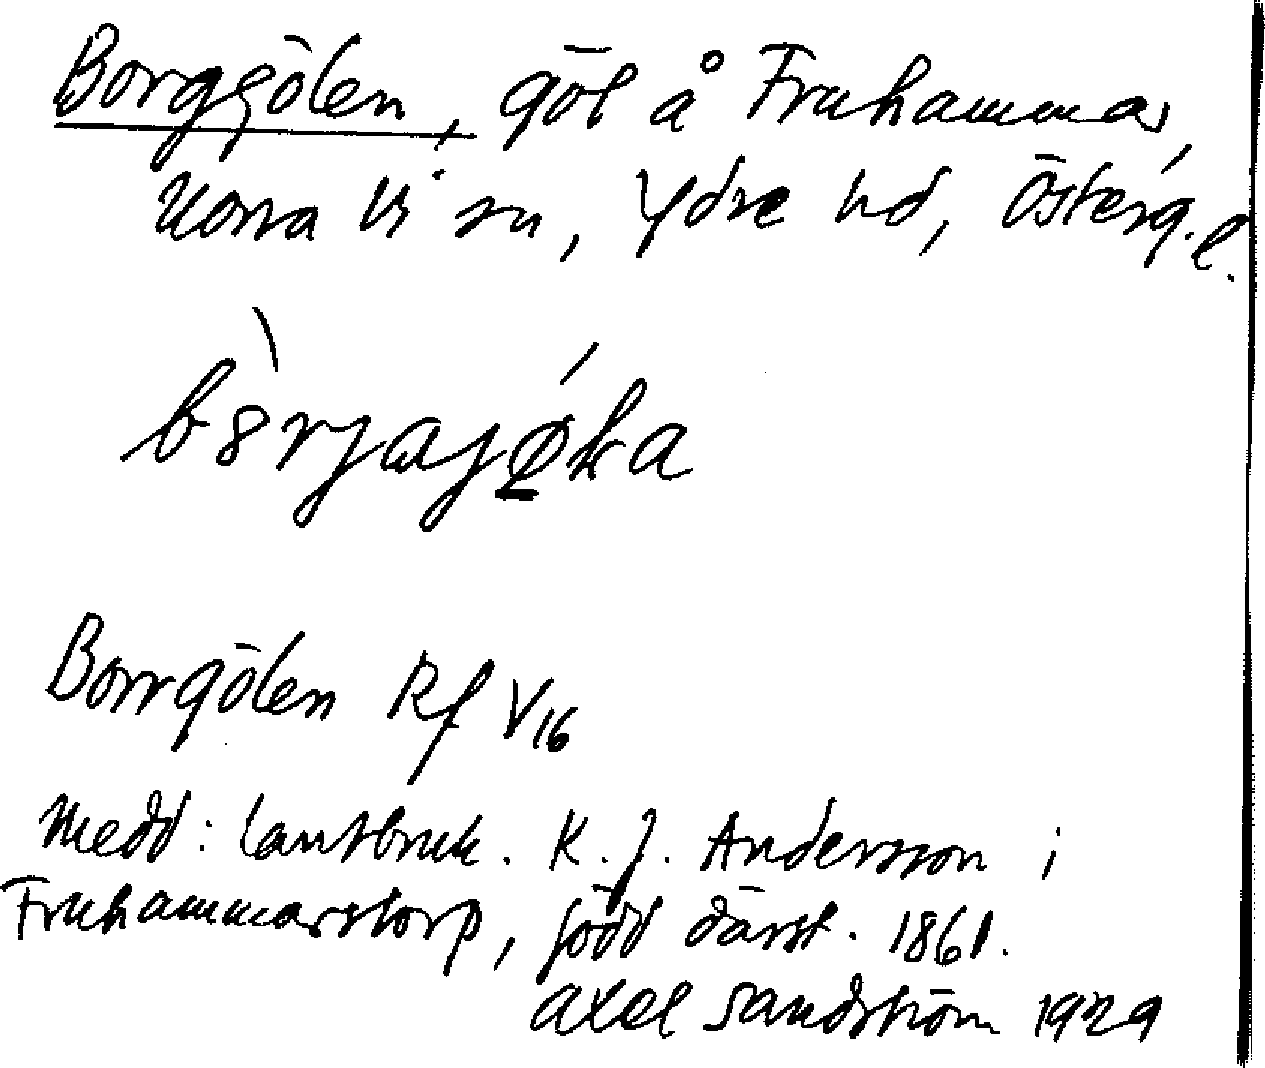 Borggölen, göl å Fruhammar,
Norra Vi sn, Ydre hd, Österg.l.
b8rjajøka
Borrgölen Rf V 16
Medd: lantbruk. K. J. Andersson i
Fruhammarstorp, född därst. 1861.
Axel Sandström 1929